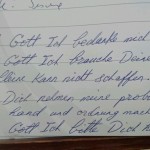 Gott Ich bedanke mich
Gott Ich brauche Deine
kann nicht schaffen.
Dich nehmen meine prob
Hand und ordnung mach
Gott Ich bitte Dich